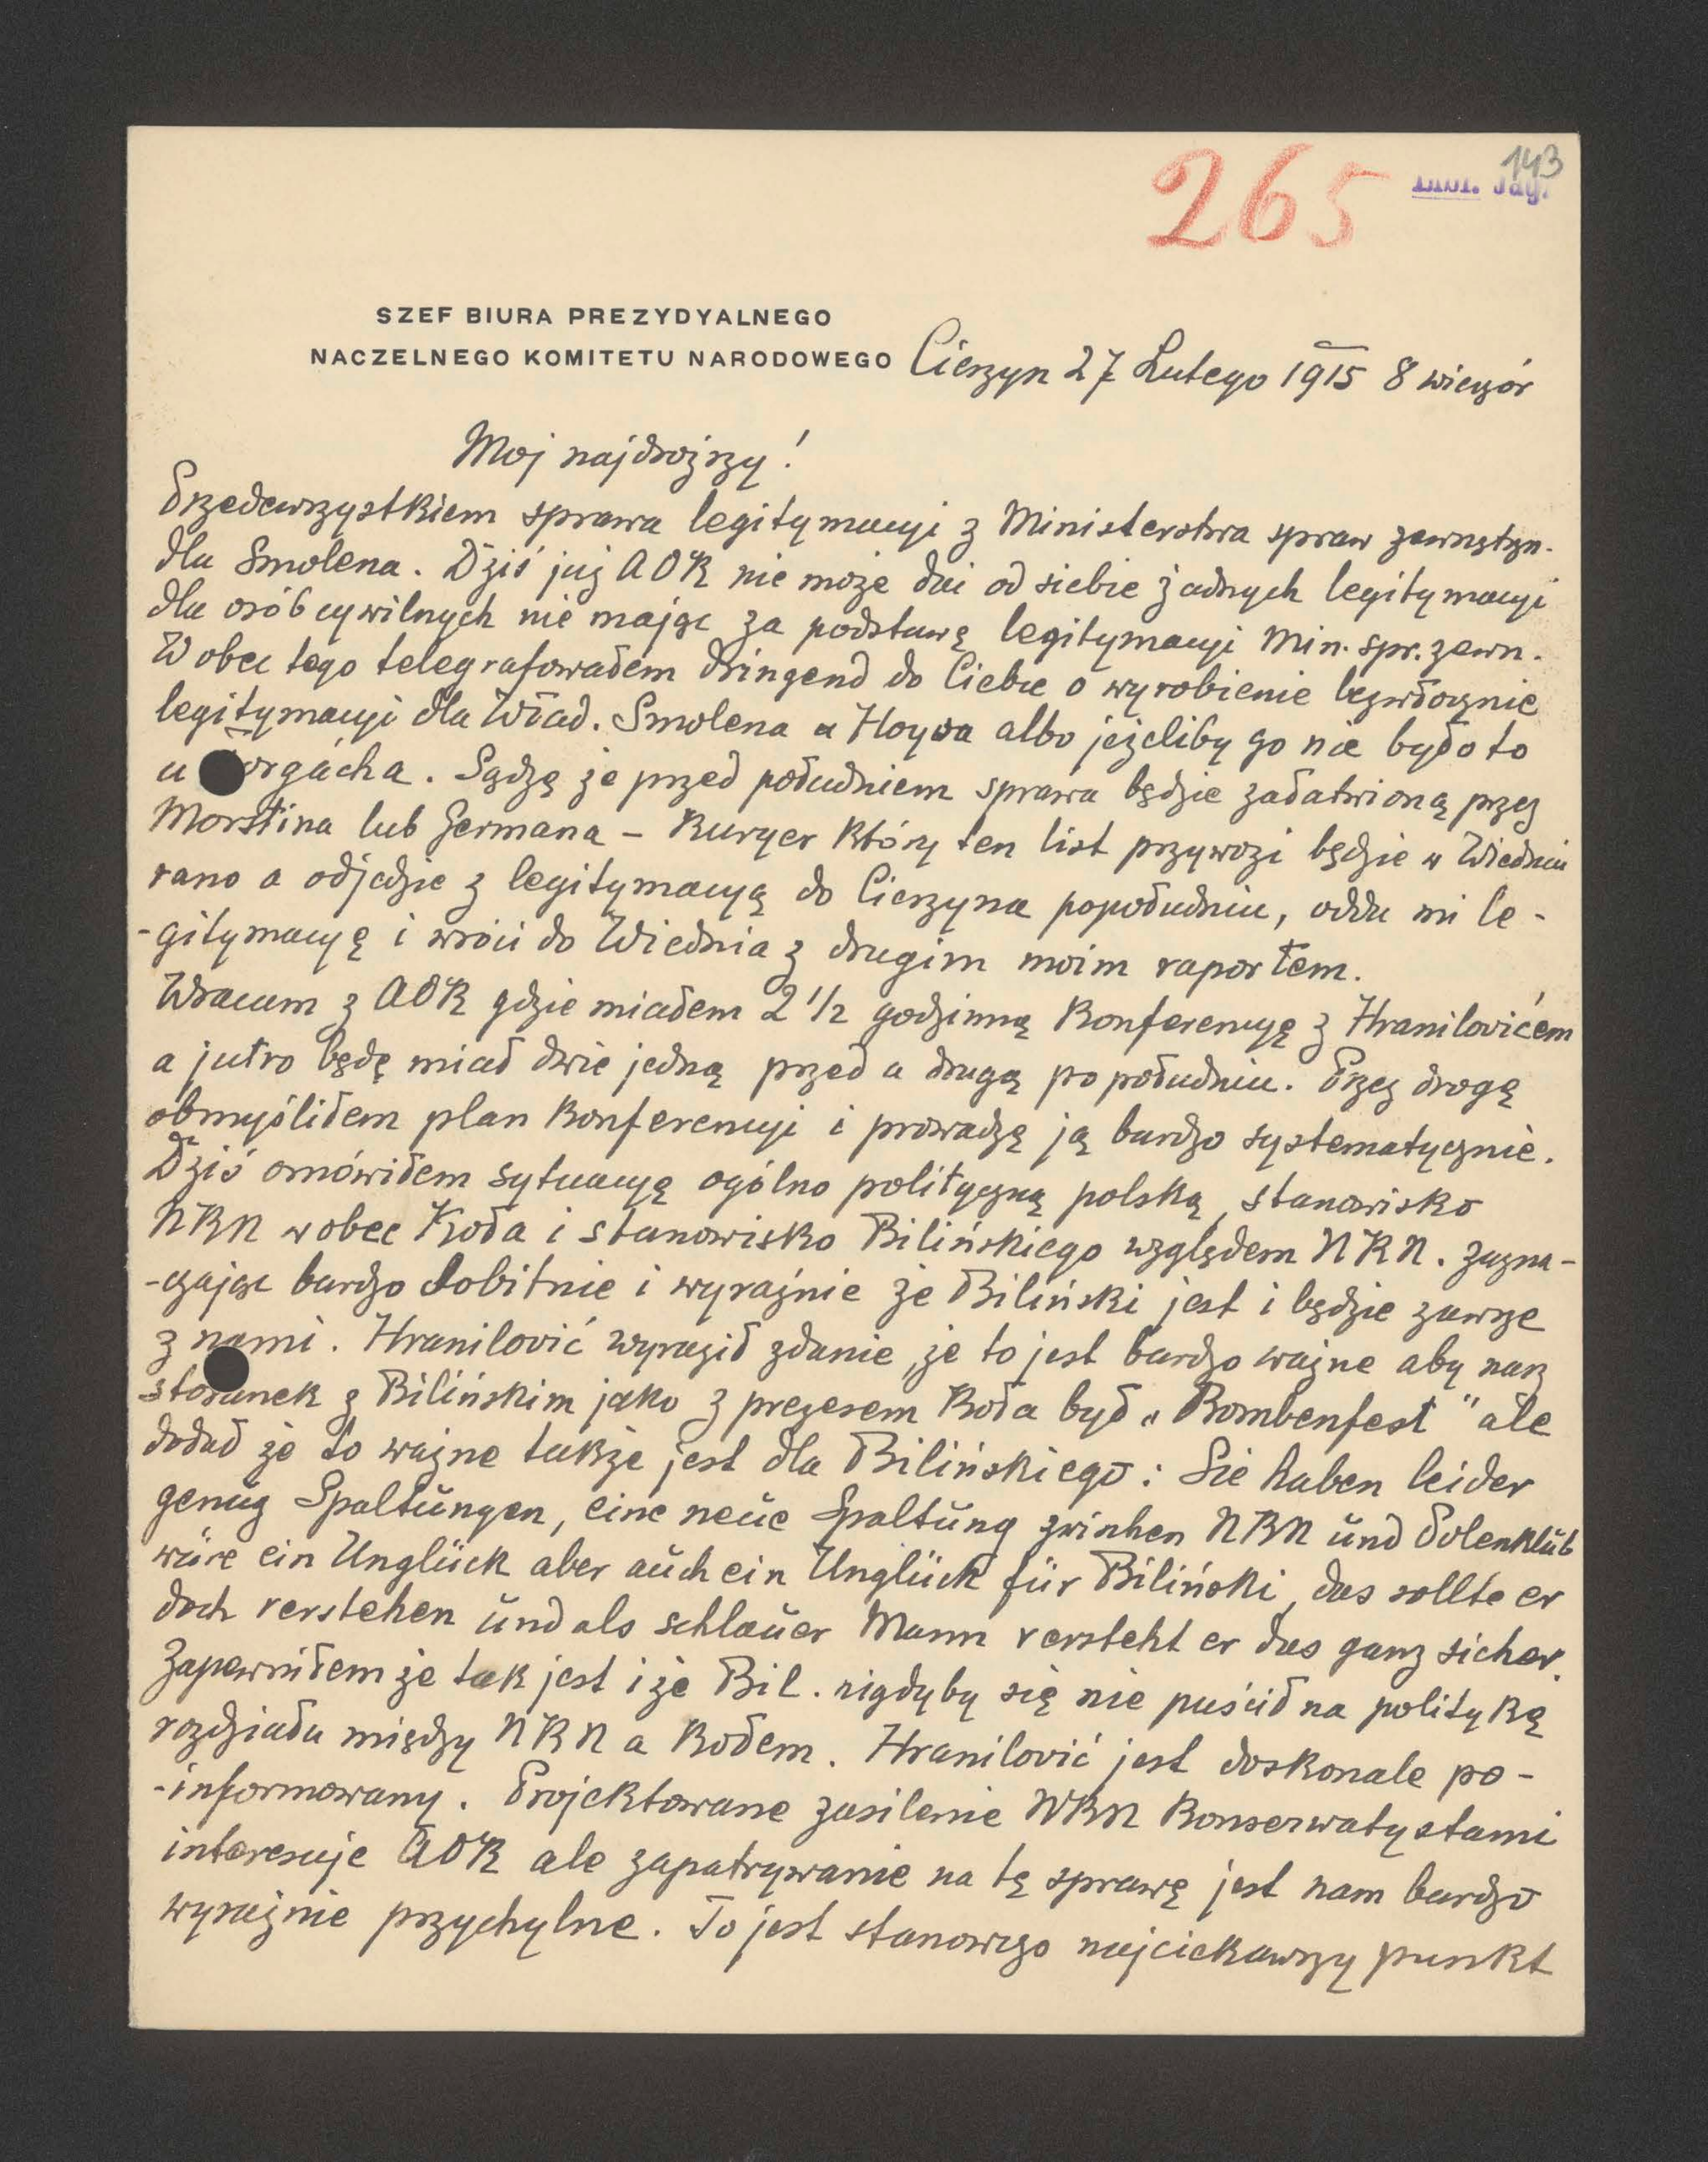 143
265
Bibl. Jag.
SZEF BIURA PREZYDYALNEGO
NACZELNEGO KOMITETU NARODOWEGO
Cieszyn 27 Lutego 1915 8 wieczór
Moj najdroższy!
Przedewszystkiem sprawa legitymacyi z Ministerstwa spraw zewnętrzn.
dla Smolena. Dziś już AOK nie może dać od siebie żadnych legitymacyi
dla osób cywilnych nie mając za podstawę legitymacyi Min. spr. zewn.
Wobec tego telegrafowałem dringend do Ciebie o wyrobienie bezwłocznie
legitymacyi dla Wład. Smolena u Hoyosa albo jeżeliby go nie było to
u orgácha. Sądzę że przed południem sprawa będzie załatwioną przez
Morstina lub Germana – Kuryer który ten list przywozi będzie w Wiedniu
rano a odjedzie z legitymacyą do Cieszyna popołudniu, odda mi le-
-gitymacyę i wróci do Wiednia z drugim moim raportem.
Wracam z AOK gdzie miałem 2 1/2 godzinną Konferencyę z Hranilovićem
a jutro będę miał dwie jedną przed a drugą popołudniu. Przez drogę
obmyśliłem plan Konferencyi i prowadzę ją bardzo systematycznie.
Dziś omówiłem sytuacyę ogólno polityczną polską, stanowisko
NKN wobec Koła i stanowisko Bilińskiego względem NKN. zazna-
-czając bardzo dobitnie i wyraźnie że Biliński jest i będzie zawsze
z nami. Hranilović wyraził zdanie, że to jest bardzo ważne aby nasz
stosunek z Bilińskim jako z prezesem Koła był „Bombenfest" ale
dodał że to ważne także jest dla Bilińskiego: Sie haben leider
genug Spaltungen, eine neue Spaltung zwischen NKN und Polenklub
wäre ein Unglück aber auch ein Unglück für Biliński, das sollte er
doch verstehen und als schlauer Mann versteht er das ganz sicher.
Zapewniłem że tak jest i że Bil. nigdyby się nie puścił na politykę
rozdziału między NKN a Kołem. Hranilović jest doskonale po-
-informowany. Projektowane zasilenie NKN Konserwatystami
interesuje AOK ale zapatrywanie na tę sprawę jest nam bardzo
wyraźnie przychylne. To jest stanowczo najciekawszy punkt